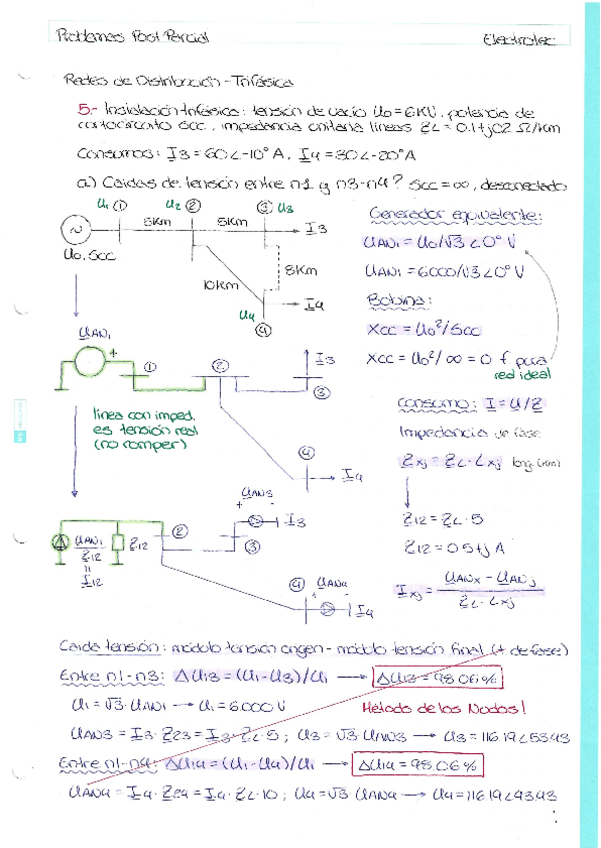 Problemas Post Parcial
Electrotec.
Redes de Distribución - Trifásica
5.- Instalación trifásica: tensión de vacío U₀=6KV, potencia de
cortocircuito Scc, impedancia unitaria líneas Z_L = 0.1+j0.2 Ω/km
Consumos: I3 = 60∠-10° A, I4 = 30∠-20° A
a) Caídas de tensión entre n1 y n3-n4? Scc=∞, desconectado
U₁ ① U₂ ② ③ U₃
5Km 5Km I3
U₀, Scc
10Km 8Km
U₄ I4
④
Generador equivalente:
UAN1 = U₀/√3∠0° V
UAN1 = 6000/√3∠0° V
Bobina:
Xcc = U₀²/Scc
Xcc = U₀²/∞ = 0 f pura
red ideal
UAN1
+ ① ② I3
③
línea con imped.
es tensión real
(no romper)
④
I4
Consumo: I = U/Z
Impedancia de fase
Zxj = ZL · Lxj long (km)
Z12 = ZL · 5
Z12 = 0.5+j A
Ixj = UANx - UANj / ZL · Lxj
UAN3
+ - I3
UAN1 / Z12 Z12 ② ③
=
I12
④ UAN4
+ - I4
Caída tensión: módulo tensión origen - módulo tensión final (+ de fase)
Entre n1-n3: ΔU13 = (U1-U3)/U1 → ΔU13 = 98.06%
U1 = √3 · UAN1 → U1 = 6000V
Método de los Nudos!
UAN3 = I3 · Z23 = I3 · ZL · 5 ; U3 = √3 · UAN3 → U3 = 116.19∠53.43
Entre n1-n4: ΔU14 = (U1-U4)/U1 → ΔU14 = 98.06%
UAN4 = I4 · Z24 = I4 · ZL · 10 ; U4 = √3 · UAN4 → U4 = 116.19∠43.43